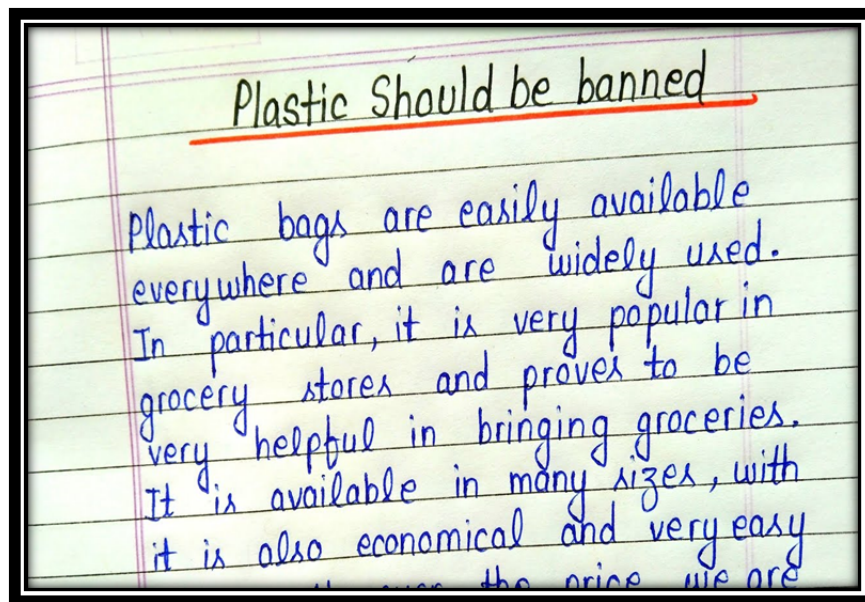 Plastic Should be banned
Plastic bags are easily available
everywhere and are widely used.
In particular, it is very popular in
grocery stores and proves to be
very helpful in bringing groceries.
It is available in many sizes, with
it is also economical and very easy
the price we are